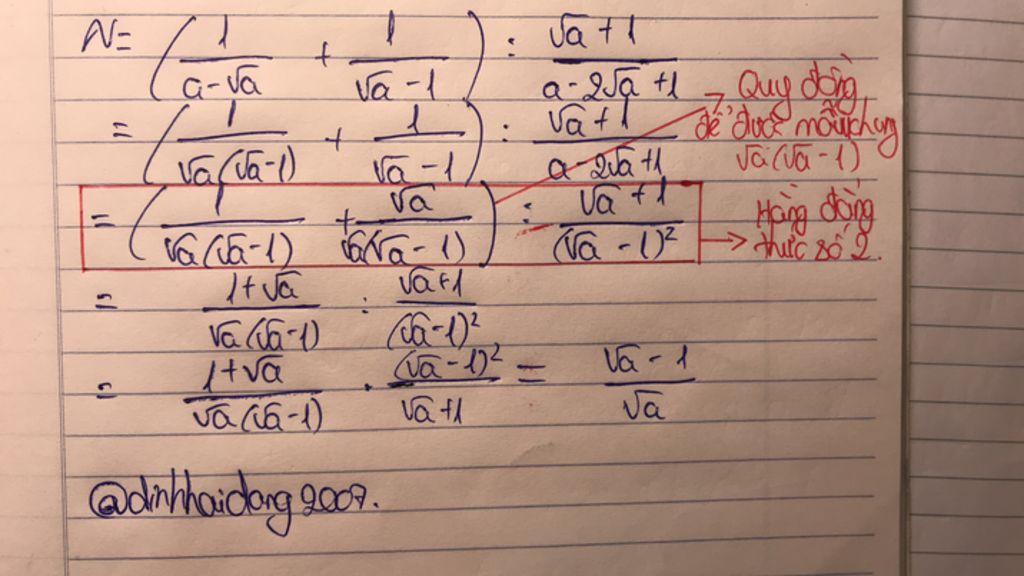 N = (1/(a-√a) + 1/(√a-1)) : (√a+1)/(a-2√a+1)
= (1/(√a(√a-1)) + 1/(√a-1)) : (√a+1)/(a-2√a+1)
→ Quy đồng
để được mẫu chung
√a(√a-1)
= (1/(√a(√a-1)) + √a/(√a(√a-1))) : (√a+1)/(√a-1)²
→ Hằng đẳng
thức số 2.
= (1+√a)/(√a(√a-1)) : (√a+1)/(√a-1)²
= (1+√a)/(√a(√a-1)) . (√a-1)²/(√a+1) = (√a-1)/√a
@dinhhaidang2007.